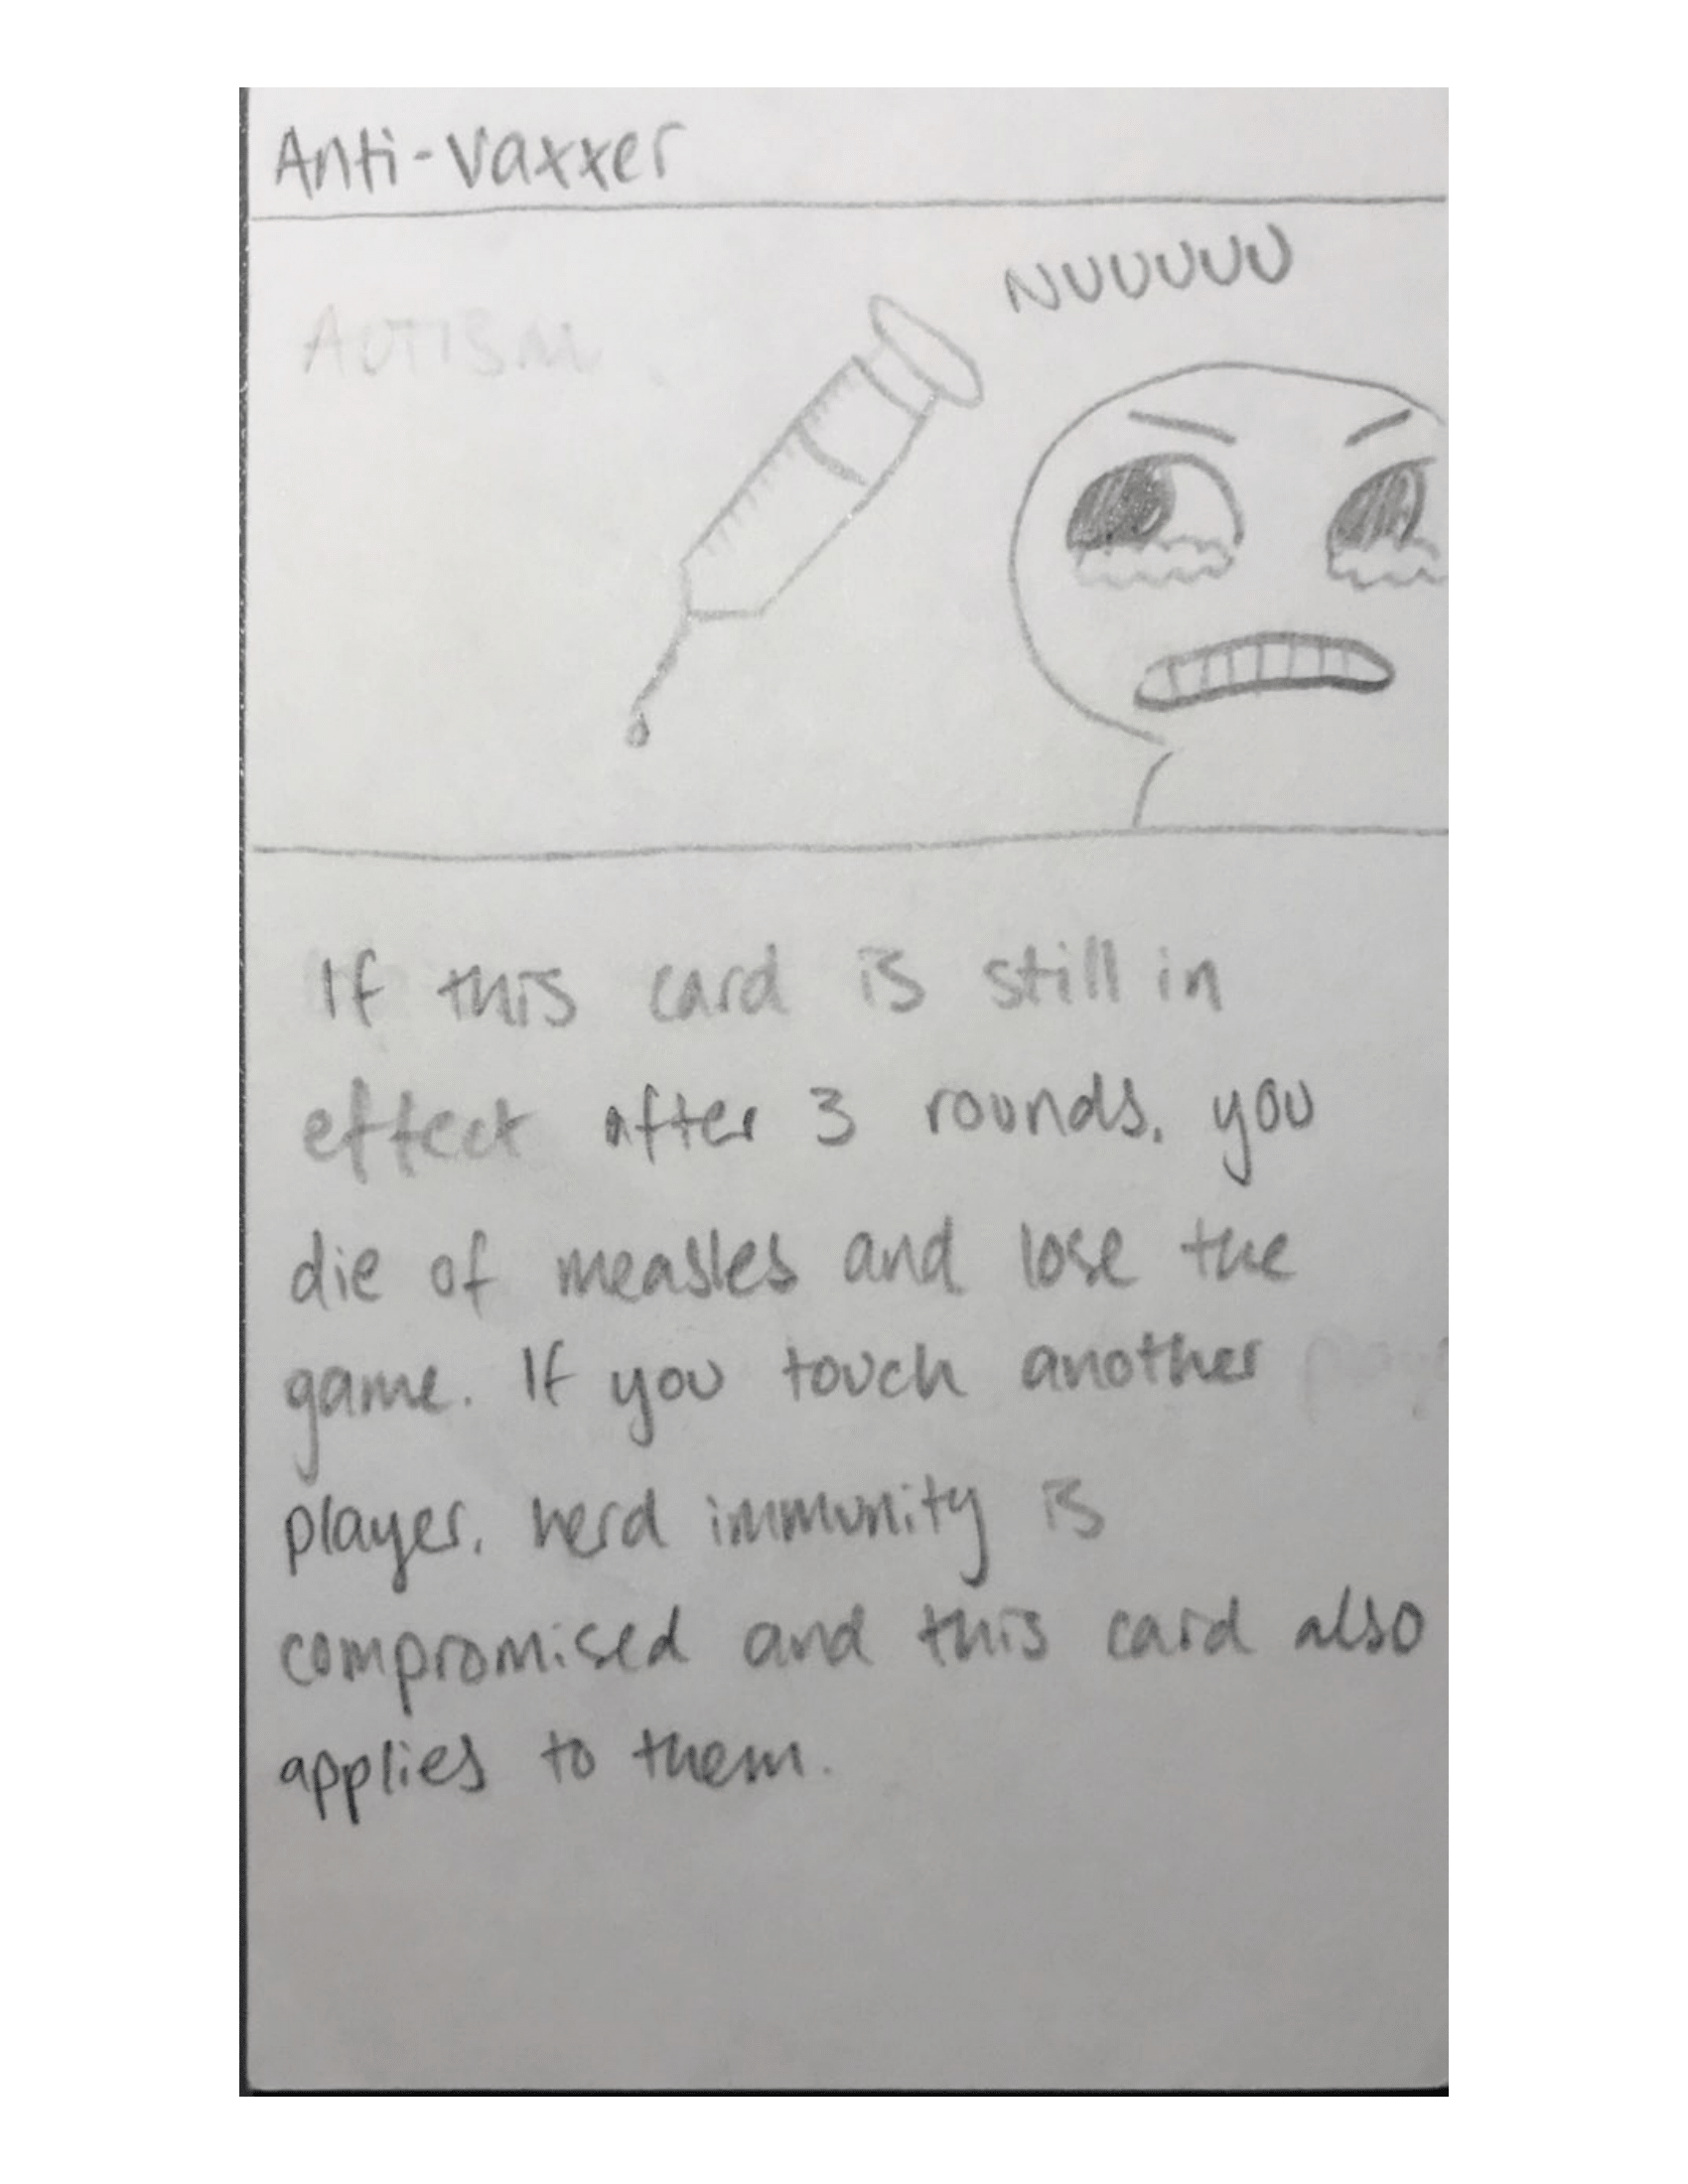 Anti-vaxxer
NUUUUU
AUTISM
If this card is still in
effect after 3 rounds, you
die of measles and lose the
game. If you touch another
player, herd immunity is
compromised and this card also
applies to them.